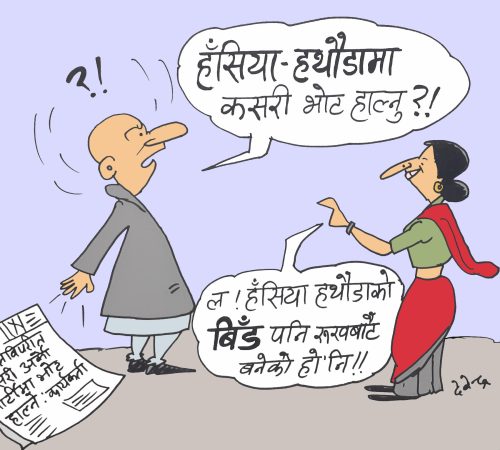 ?!
हँसिया-हथौडामा
कसरी भोट हाल्नु ?!
ल ! हँसिया हथौडाको
बिँड पनि रूखबाटै
बनेको हो नि !!
अर्को
भोट
हाल्ने : कार्यकर्ता
देवेन्द्र